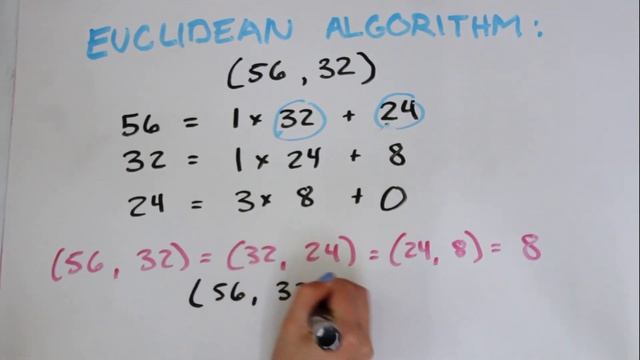 EUCLIDEAN ALGORITHM:
(56, 32)
56 = 1 × 32 + 24
32 = 1 × 24 + 8
24 = 3 × 8 + 0
(56, 32) = (32, 24) = (24, 8) = 8
(56, 3